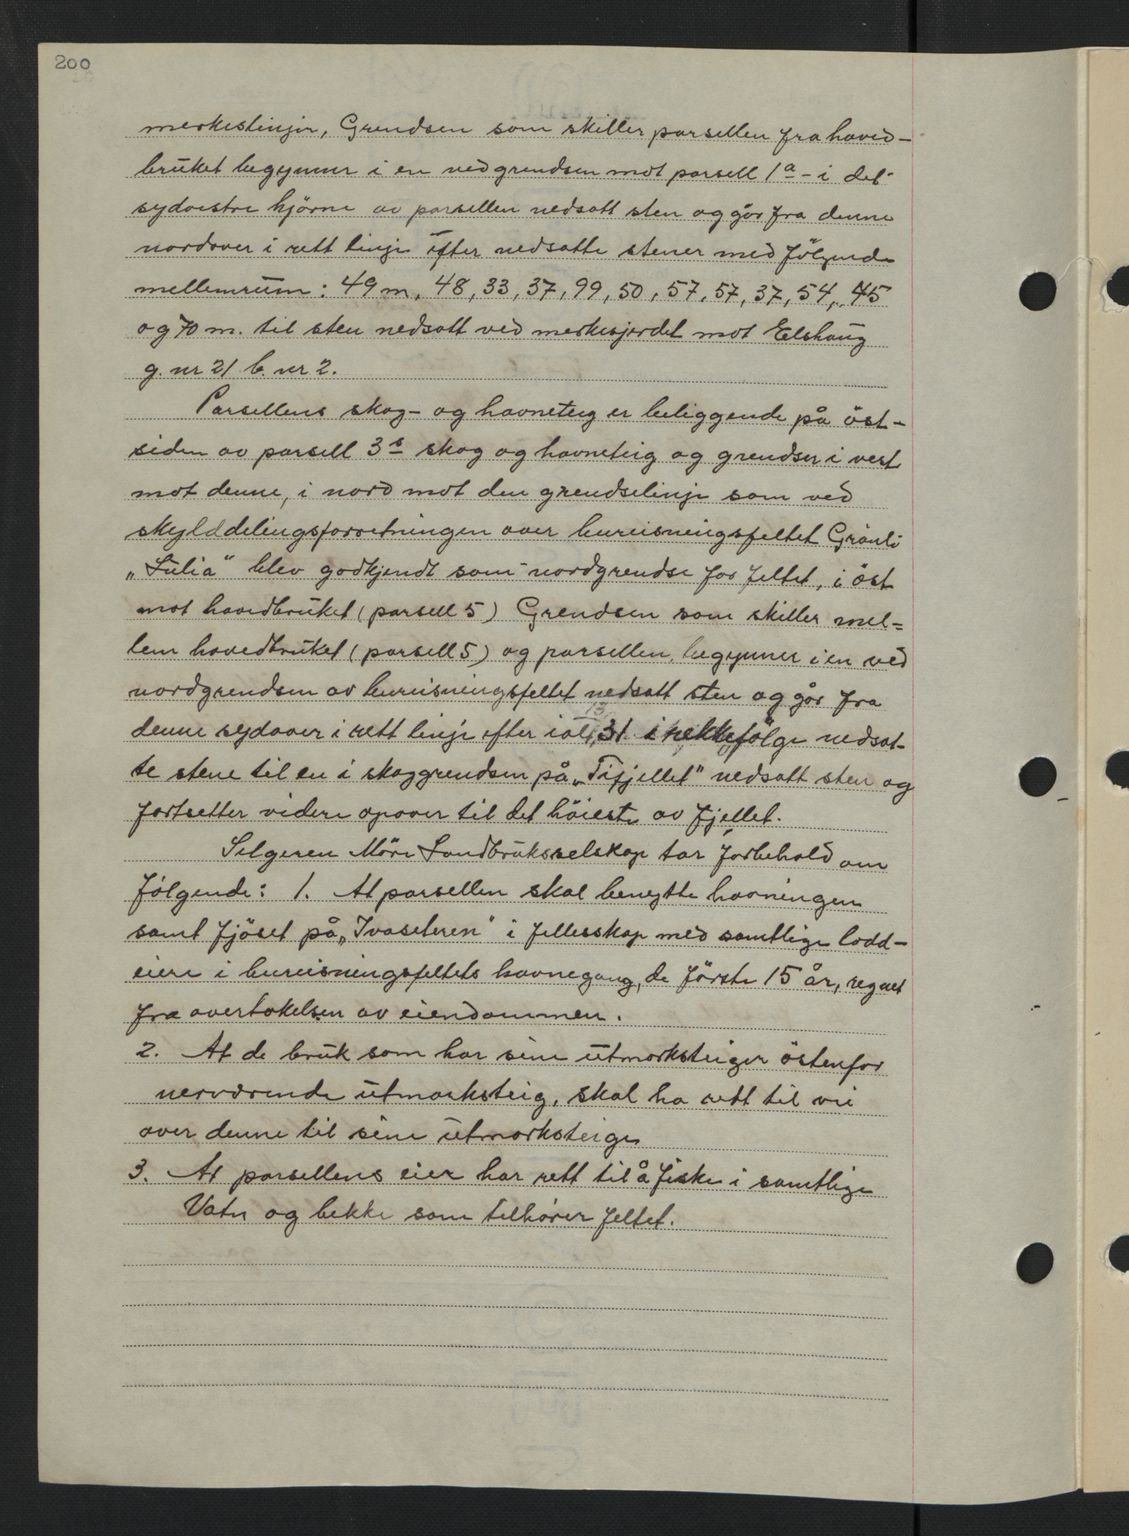 200
merkeslinjer, Grendsen som skiller parsellen fra hoved-
bruket begynner i en ved grendsen mot parsell 1a - i det
sydvestre hjørne av parsellen nedsatt sten og går fra denne
nordover i rett linje efter nedsatte stener med følgende
mellemrum: 49 m, 48, 33, 37, 99, 50, 57, 57, 37, 54, 45
og 70 m. til sten nedsatt ved merkesgjerdet mot Elshaug
g. nr 21 b. nr 2.
Parsellens skog- og havneteig er beliggende på øst-
siden av parsell 3s skog og havneteig og grendser i vest
mot denne, i nord mot den grendselinje som ved
skylddelingsforretningen over bureisningsfeltet Grønli
„Sülia" blev godkjendt som nordgrendse for feltet, i øst
mot hovedbruket (parsell 5) Grendsen som skiller mel=
lem hovedbruket (parsell 5) og parsellen, begynner i en ved
nordgrendsen av bureisningsfeltet nedsatt sten og går fra
denne sydover i rett linje efter ialt 13 31 i rekkefølge nedsat-
te stene til en i skoggrendsen på „Tifjellet" nedsatt sten og
fortsetter videre opover til det høieste av fjellet.
Selgeren Møre Landbruksselskap tar forbehold om
følgende: 1. At parsellen skal benytte havningen
samt fjøset på „Ivaseteren" i fellesskap med samtlige lodd-
eiere i bureisningsfeltets havnegang, de første 15 år, regnet
fra overtakelsen av eiendommen.
2. At de bruk som har sine utmarksteiger østenfor
nerværende utmarksteig, skal ha rett til vei
over denne til sine utmarksteige
3. At parsellens eier har rett til å fiske i samtlige
Vatn og bekke som tilhører feltet.